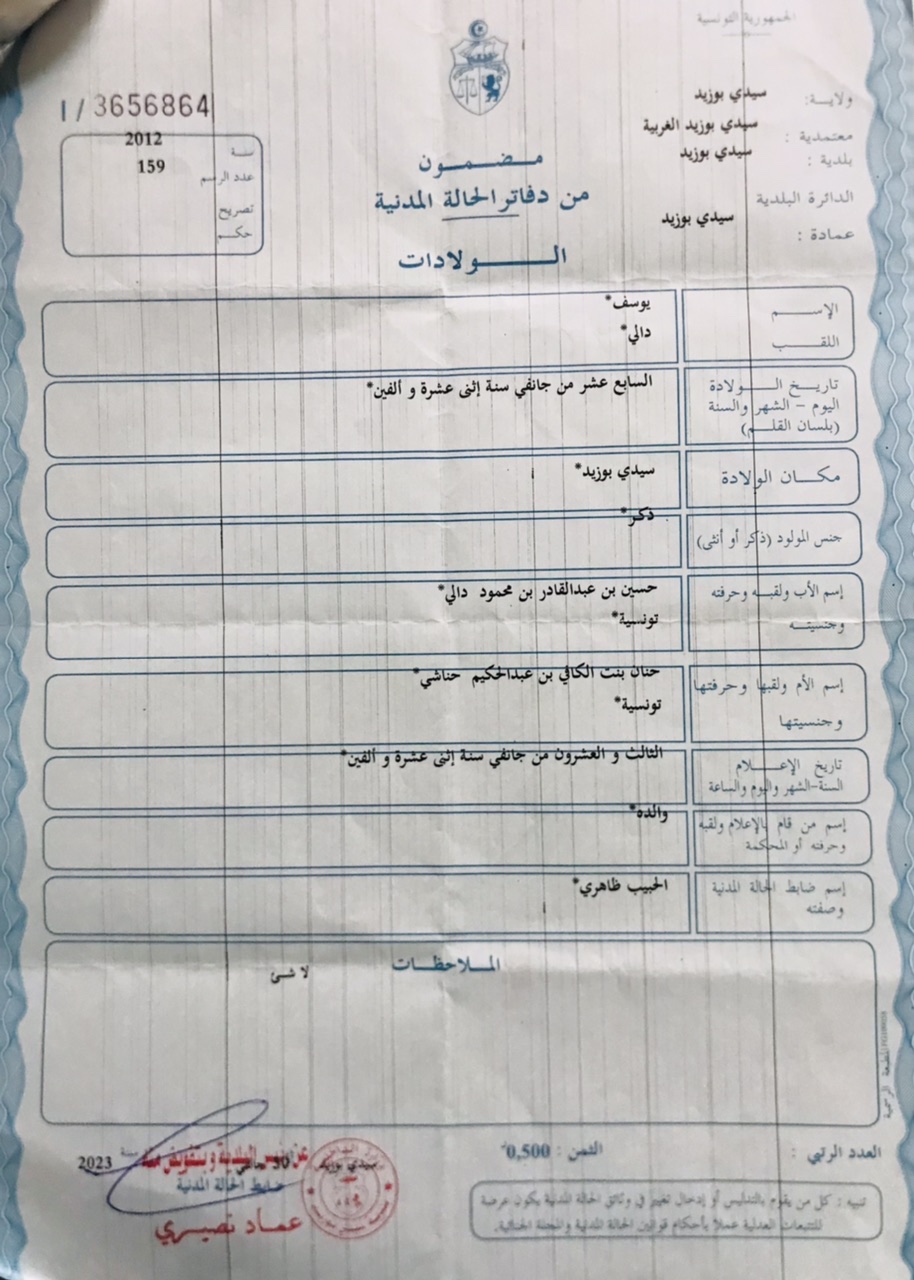 الجمهورية التونسية
ولاية: سيدي بوزيد
معتمدية : سيدي بوزيد الغربية
بلدية : سيدي بوزيد
الدائرة البلدية
عمادة : سيدي بوزيد
1/3656864
سنة 2012
عدد الرسم 159
تصريح
حكم
مضمون
من دفاتر الحالة المدنية
الولادات
الإسم يوسف*
اللقب دالي*
تاريخ الولادة السابع عشر من جانفي سنة إثنى عشرة و ألفين*
اليوم - الشهر والسنة
(بلسان القلم)
مكان الولادة سيدي بوزيد*
جنس المولود (ذكر أو أنثى) ذكر*
إسم الأب ولقبه وحرفته حسين بن عبدالقادر بن محمود دالي*
وجنسيته تونسية*
إسم الأم ولقبها وحرفتها حنان بنت الكافي بن عبدالحكيم حناشي*
وجنسيتها تونسية*
تاريخ الإعلام الثالث و العشرون من جانفي سنة إثنى عشرة و ألفين*
السنة-الشهر واليوم والساعة
إسم من قام بالإعلام ولقبه والده*
وحرفته أو المحكمة
إسم ضابط الحالة المدنية الحبيب ظاهري*
وصفته
الملاحظات
لا شئ
المطبعة الرسمية
العدد الرتبي :
الثمن : 0,500د
سيدي بوزيد 30 جانفي سنة 2023
عن رئيس البلدية و بتفويض منه
ضابط الحالة المدنية
عماد نصيري
تنبيه : كل من يقوم بالتدليس أو إدخال تغيير في وثائق الحالة المدنية يكون عرضة
للتتبعات العدلية عملا بأحكام قوانين الحالة المدنية والمجلة الجنائية.